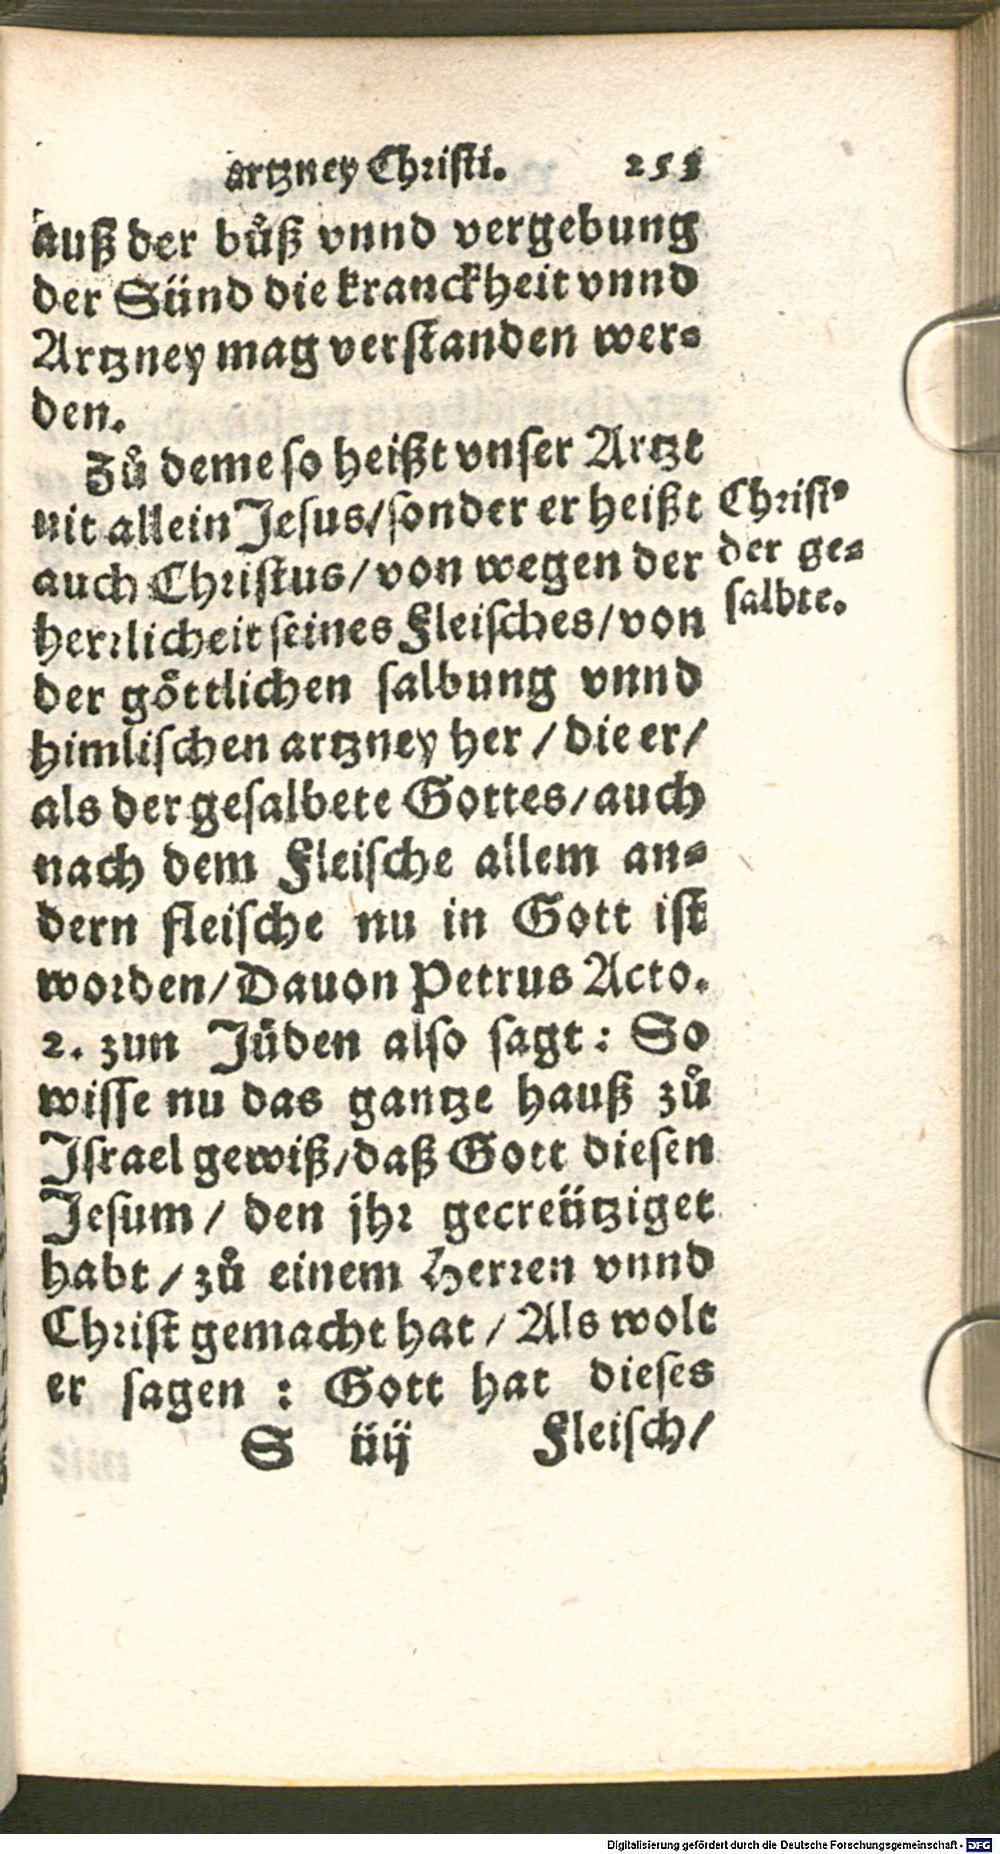 artzney Christi. 253
auß der bůß vnnd vergebung
der Sünd die kranckheit vnnd
Artzney mag verstanden wer-
den.
Zů deme so heißt vnser Artzt
nit allein Jesus/sonder er heißt
auch Christus/von wegen der
herrlicheit seines Fleisches/von
der göttlichen salbung vnnd
himlischen artzney her/die er/
als der gesalbete Gottes/auch
nach dem Fleische allem an-
dern fleische nu in Gott ist
worden/Dauon Petrus Acto.
2. zun Jüden also sagt: So
wisse nu das gantze hauß zů
Israel gewiß/daß Gott diesen
Jesum/ den jhr gecreütziget
habt/zů einem Herren vnnd
Christ gemacht hat/Als wolt
er sagen: Gott hat dieses
S iiij Fleisch/
Christ9
der ge-
salbte.
Digitalisierung gefördert durch die Deutsche Forschungsgemeinschaft - DFG